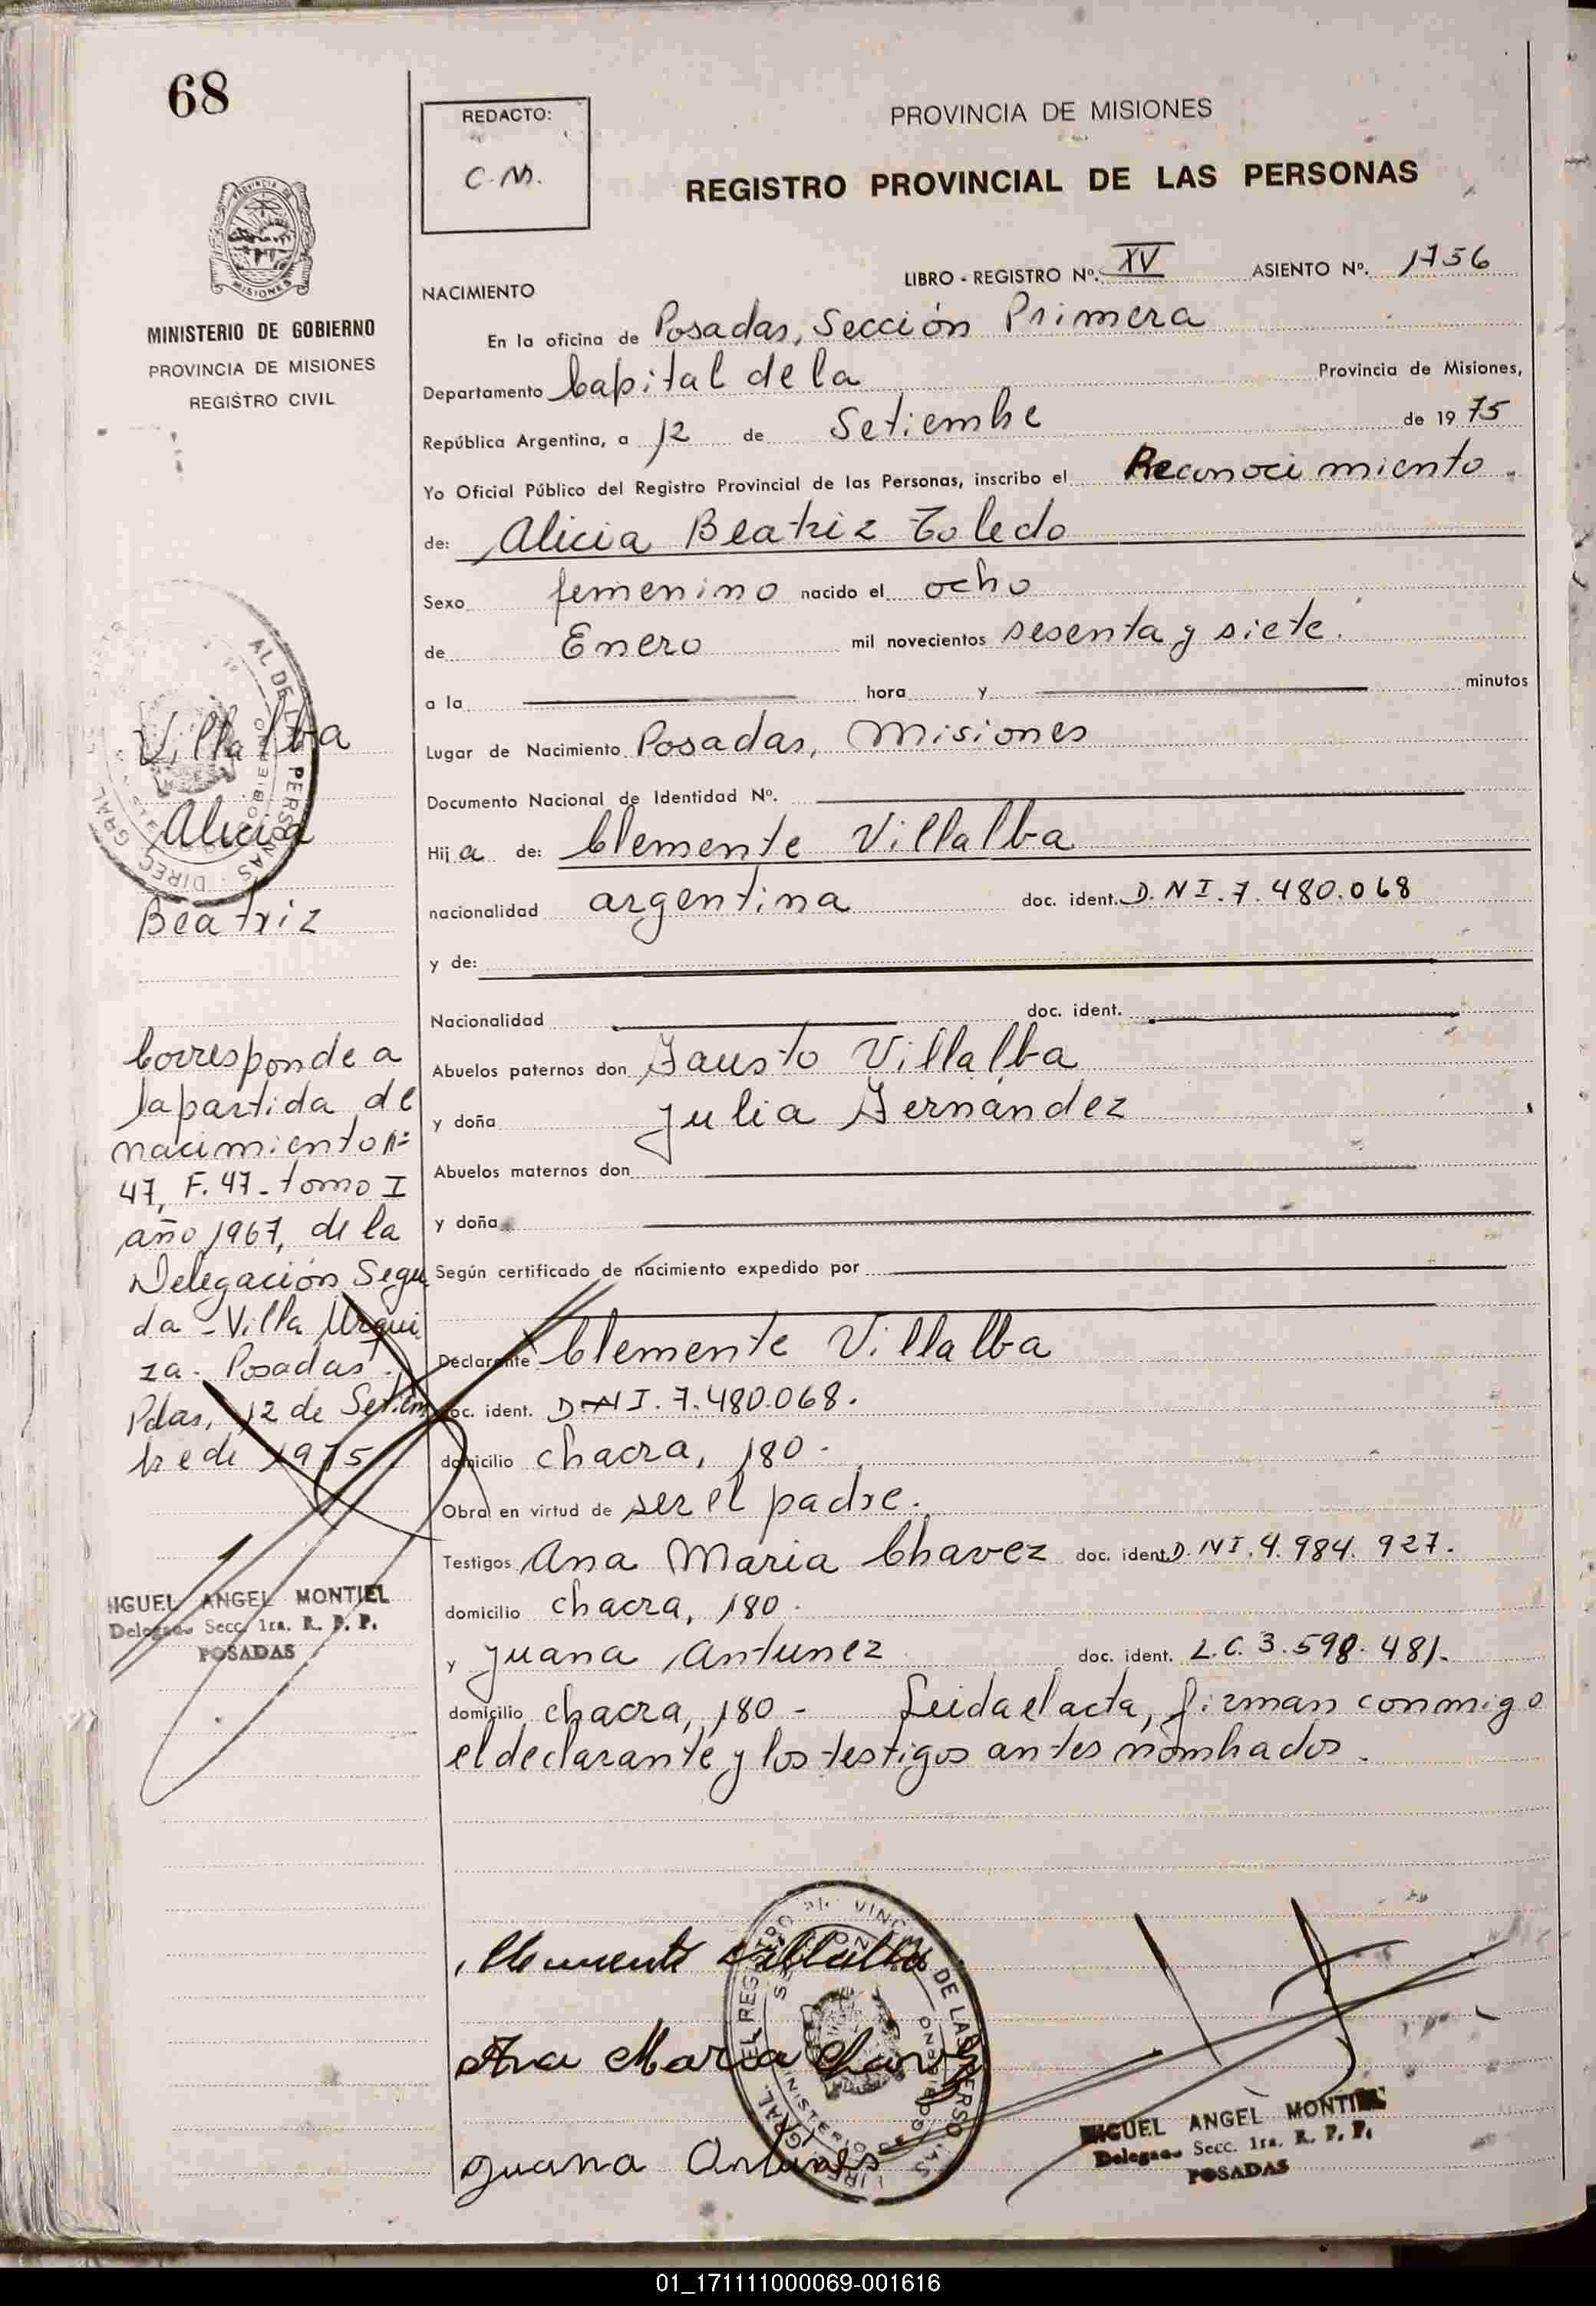 68
REDACTO:
C. M.
PROVINCIA DE MISIONES
REGISTRO PROVINCIAL DE LAS PERSONAS
LIBRO - REGISTRO Nº. XV ASIENTO Nº. 1756
NACIMIENTO
MISIONES
MINISTERIO DE GOBIERNO
PROVINCIA DE MISIONES
REGISTRO CIVIL
En la oficina de Posadas, Sección Primera
Departamento Capital de la Provincia de Misiones,
República Argentina, a 12 de Setiembre de 1975
Yo Oficial Público del Registro Provincial de las Personas, inscribo el Reconocimiento.
de: Alicia Beatriz Toledo
Sexo femenino nacido el ocho
de Enero mil novecientos sesenta y siete.
a la hora y minutos
Lugar de Nacimiento Posadas, Misiones
Documento Nacional de Identidad Nº.
Hija de: Clemente Villalba
nacionalidad argentina doc. ident. D.N I. 7.480.068
y de:
Nacionalidad doc. ident.
Abuelos paternos don Fausto Villalba
y doña Julia Fernández
Abuelos maternos don
y doña
Según certificado de nacimiento expedido por
Declarante Clemente Villalba
doc. ident. D.N I. 7.480.068.
domicilio chacra, 180.
Obra en virtud de ser el padre.
Testigos Ana Maria Chavez doc. ident. D. N I. 4.984.927.
domicilio chacra, 180.
y Juana Antunez doc. ident. L.C. 3.598.481.
domicilio chacra, 180 - Leida el acta, firman conmigo
el declarante y los testigos antes nombrados.
Villalba
Alicia
Beatriz
Corresponde a
la partida de
nacimiento nº
47, F. 47 - tomo I
año 1967, de la
Delegación Segu
da - Villa Urqui
za - Posadas.
Pdas, 12 de Setiem
bre de 1975
MIGUEL ANGEL MONTIEL
Delegado Secc. 1ra. R. P. P.
POSADAS
Clemente Villalba
Ana Maria Chavez
Juana Antunes
MIGUEL ANGEL MONTIEL
Delegado Secc. 1ra. R. P. P.
POSADAS
01_171111000069-001616